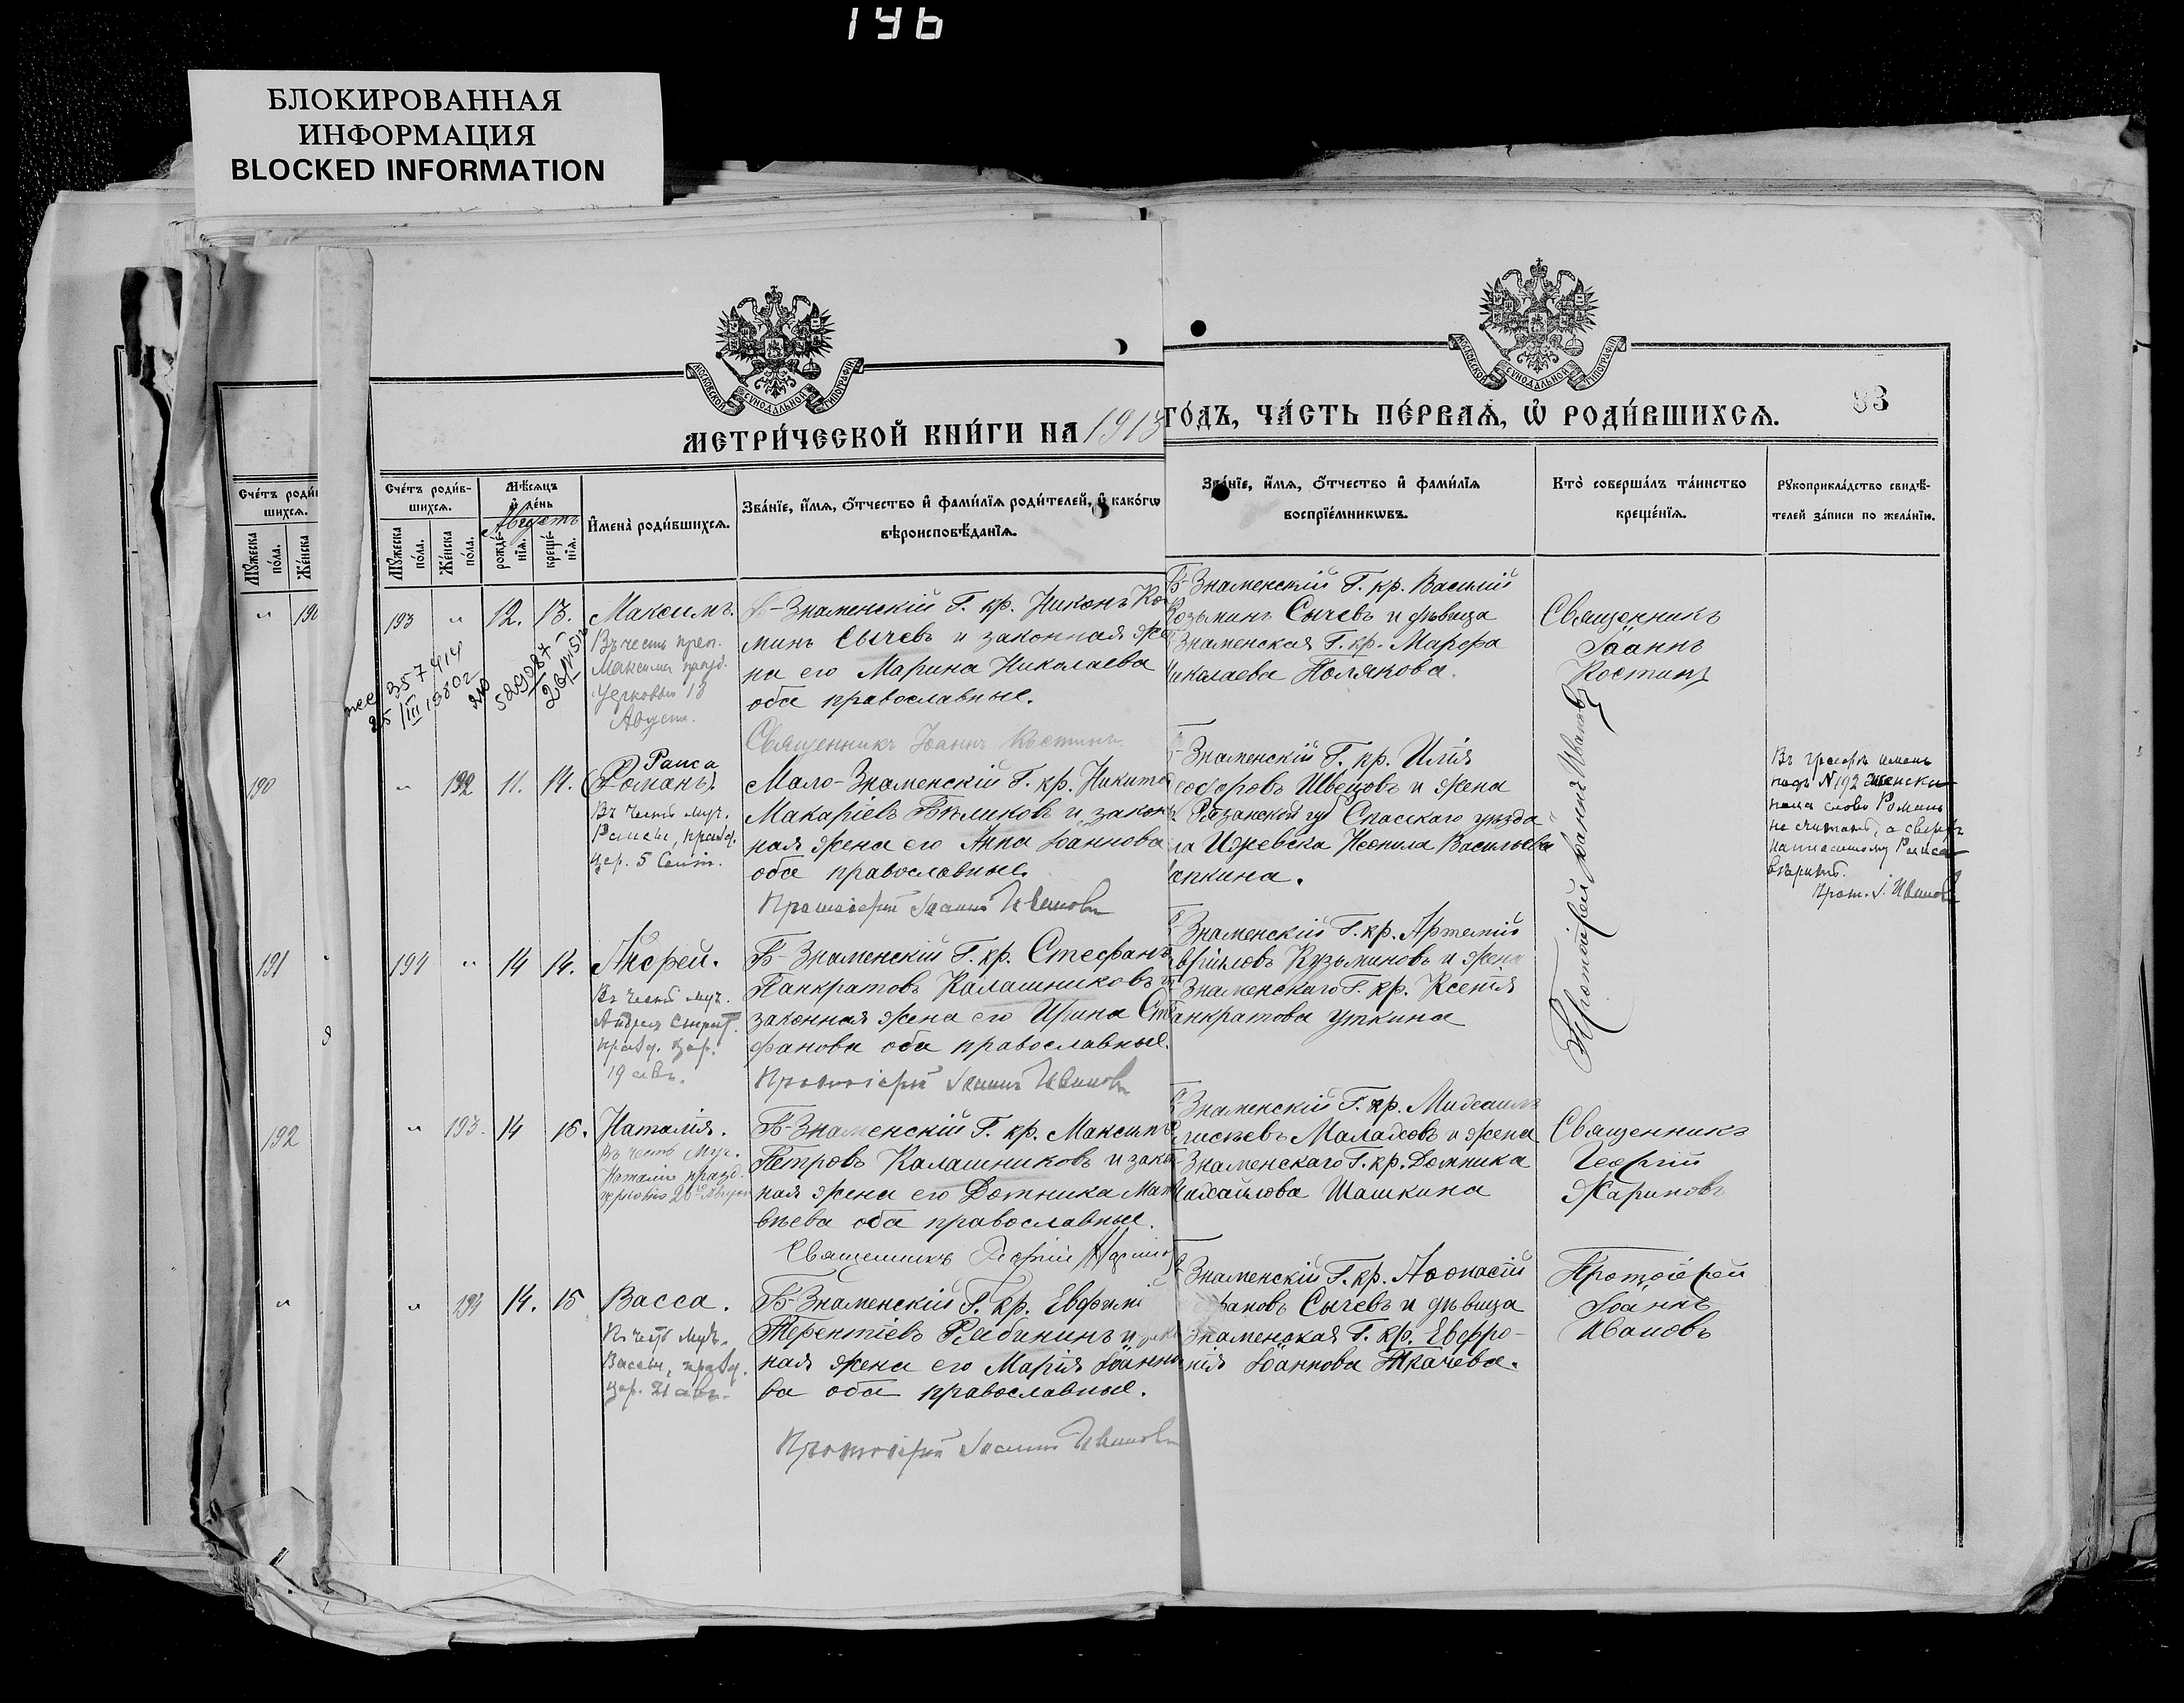 196
БЛОКИРОВАННАЯ
ИНФОРМАЦИЯ
BLOCKED INFORMATION
МОСКОВСКОЙ СѴНОДАЛЬНОЙ ТИПОГРАФІИ
МОСКОВСКОЙ СѴНОДАЛЬНОЙ ТИПОГРАФІИ
МЕТРИ́ЧЕСКОЙ КНИ́ГИ НА 1913
ГО́ДЪ, ЧА́СТЬ ПЕ́РВАѦ, Ѡ҆ РОДИ́ВШИХСѦ.
83
Сче́тъ роди́
шихсѧ.
Мꙋ́жеска по́ла.
Же́нска
Сче́тъ роди́в-
шихсѧ.
Мꙋ́жеска по́ла.
Же́нска по́ла.
Мѣ́сѧцъ
и҆ де́нь
Августъ
рожде́-нїѧ.
креще́-нїѧ.
И҆мена̀ роди́вшихсѧ.
Зва́нїе, и҆́мѧ, ѻ҆́тчество и҆ фамѝлїѧ роди́телей, и҆ како́гѡ
вѣроисповѣ́данїѧ.
Зва́нїе, и҆́мѧ, ѻ҆́тчество и҆ фамѝлїѧ
воспрїе́мникѡвъ.
Кто̀ соверша́лъ та́инство
креще́нїѧ.
Рꙋкоприкла́дство свидѣ́-
телей за́писи по жела́нїю.
193 „ 12. 13. Максимъ.
Въ честь преп.
Максима празд.
Церковью 13
Август.
Б-Знаменскій Г. кр. Никонъ Ко
минъ Сычевъ и законная же
на его Марина Николаева
оба православные.
Священникъ Іоаннъ Костинъ
Б-Знаменскій Г. кр. Василій
Козьминъ Сычевъ и дѣвица
Знаменская Г. кр. Марѳа
Николаева Полякова.
Священникъ
Іоаннъ
Костинъ
190
„ 192 11. 14. Раиса
(Романъ)
Въ честь муч.
Раисы, празд.
цер. 5 Сент.
Мало-Знаменскій Г. кр. Никита
Макаріевъ Бѣликовъ и закон
ная жена его Анна Іоаннова
оба православные.
Протоіерей Іоаннъ Ивановъ
Б-Знаменскій Г. кр. Илія
Ѳеодоровъ Швецовъ и жена
Рязанской губ Спасскаго уѣзда
ла Ижевска Неонила Васильева
апкина.
Протоіерей Іоаннъ Ивановъ
Въ графѣ именъ
подъ №192 женска
пола слово Романъ
не считать, а сверхъ
написанному Раиса
вѣрить.
Прот. І. Ивановъ
191
194 „ 14 14. Андрей.
Въ честь муч.
Андрея Стратт.
празд. цер.
19 авг.
Б-Знаменскій Г. кр. Стефанъ
Панкратовъ Калашниковъ и
законная жена его Ирина Сте
фанова оба православные.
Протоіерей Іоаннъ Ивановъ
Знаменскій Г. кр. Артемій
Гавріиловъ Кузьминовъ и жена
Знаменскаго Г. кр. Ксенія
Панкратова Уткина
192
„ 193. 14 16. Наталія.
Въ честь Муч.
Наталіи празд.
Церковью 26го Август
Б-Знаменскій Г. кр. Максимъ
Петровъ Калашниковъ и закон
ная жена его Домника Мат
вѣева оба православные.
Священникъ Георгій Жариновъ
Б-Знаменскій Г. кр. Михаилъ
Елисѣевъ Малаховъ и жена
Знаменскаго Г. кр. Домника
Михайлова Шашкина
Священникъ
Георгій
Жариновъ
„ 194 14. 15 Васса.
Въ честь муч.
Вассы, празд.
цер. 21 авг.
Б-Знаменскій Г. кр. Евфимі
Терентіевъ Рябининъ и зако
ная жена его Марія Іоанно
ва оба православные.
Протоіерей Іоаннъ Ивановъ
Знаменскій Г. кр. Аѳонасій
фановъ Сычевъ и дѣвица
Знаменская Г. кр. Евфро-
нія Іоаннова Ткачева.
Протоіерей
Іоаннъ
Ивановъ